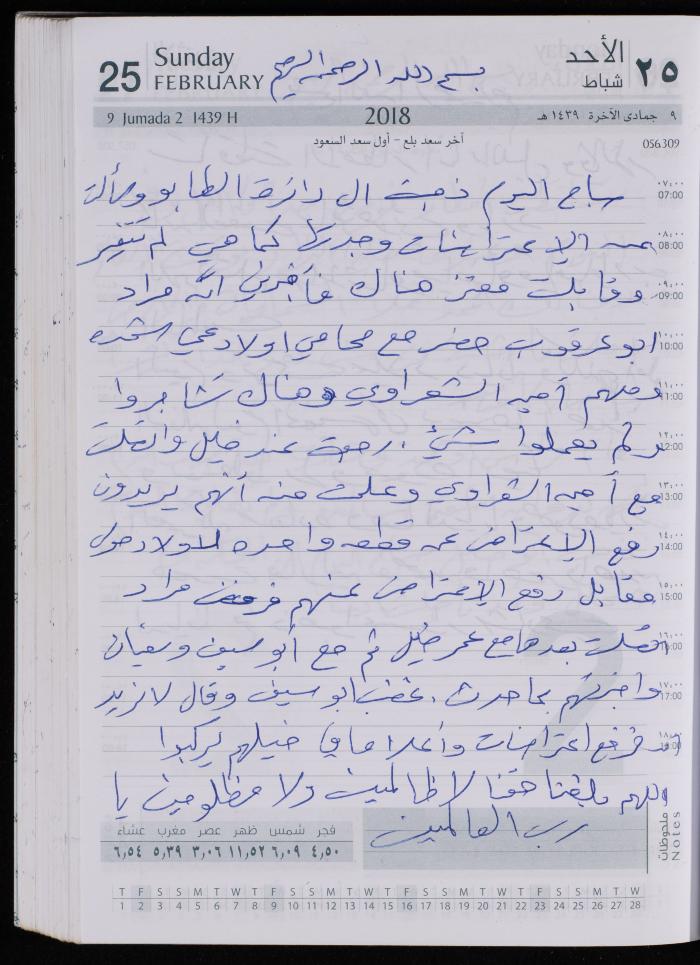 25 Sunday FEBRUARY بسم الله الرحمن الرحيم الأحد شباط ٢٥
9 Jumada 2 1439 H 2018 ٩ جمادى الآخرة ١٤٣٩ هـ
آخر سعد بلع - أول سعد السعود 056/309
٠٧:٠٠ 07:00 صباح اليوم ذهبت ال دائرة الطابو وسألت
٠٨:٠٠ 08:00 عن الاعتراضات وجدتها كما هي لم تتغير
٠٩:٠٠ 09:00 وقابلت معتز هناك فأخبرني انه مراد
١٠:٠٠ 10:00 ابو عرقوب حضر مع محامي اولاد عمي
١١:٠٠ 11:00 ومنهم الشعراوي وهناك تشاجروا
١٢:٠٠ 12:00 ولم يعملوا شيئ . رجعت عند خليل واتصلت
١٣:٠٠ 13:00 مع الشعراوي وعلمت منه أنهم يريدون
١٤:٠٠ 14:00 رفع الاعتراض عن قطعه واحده للاولاد
١٥:٠٠ 15:00 مقابل رفع الإعتراض عنهم فرفض مراد
١٦:٠٠ 16:00 اتصلت بعدها مع عمر خليل ثم مع أبو سيف وسفيان
١٧:٠٠ 17:00 واخبرتهم بما حدث . غضب ابو سيف وقال لا نريد
١٨:٠٠ 18:00 رفع اعتراضات وأعلا ما في خيلهم يركبوا
اللهم بلغنا حقنا لا ظالمين ولا مظلومين يا
رب العالمين
ملحوظات Notes
فجر شمس ظهر عصر مغرب عشاء
٤,٥٠ ٦,٠٩ ١١,٥٢ ٣,٠٦ ٥,٣٩ ٦,٥٤
T F S S M T W T F S S M T W T F S S M T W T F S S M T W
1 2 3 4 5 6 7 8 9 10 11 12 13 14 15 16 17 18 19 20 21 22 23 24 25 26 27 28